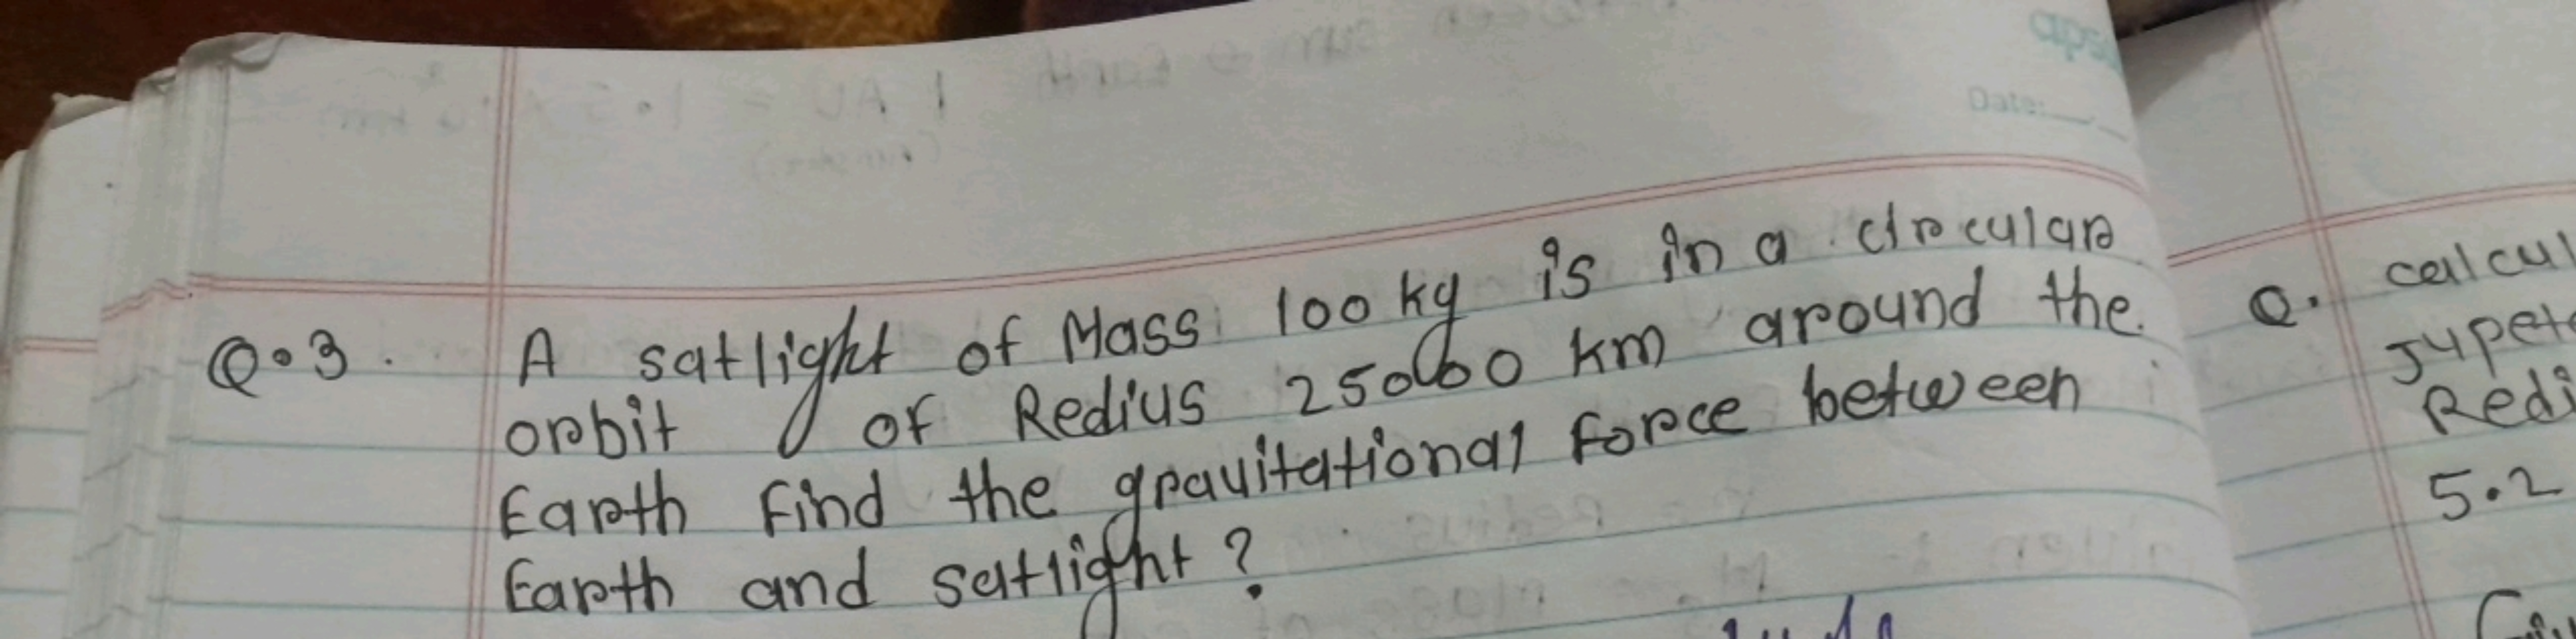 apsa
Date:
Q.3. A satlight of Mass 100 kg is in a circular
orbit of Redius 25000 km around the
Earth Find the gravitational force between
Earth and satlight?
Q. calcul
Jupet
Redi
5.2